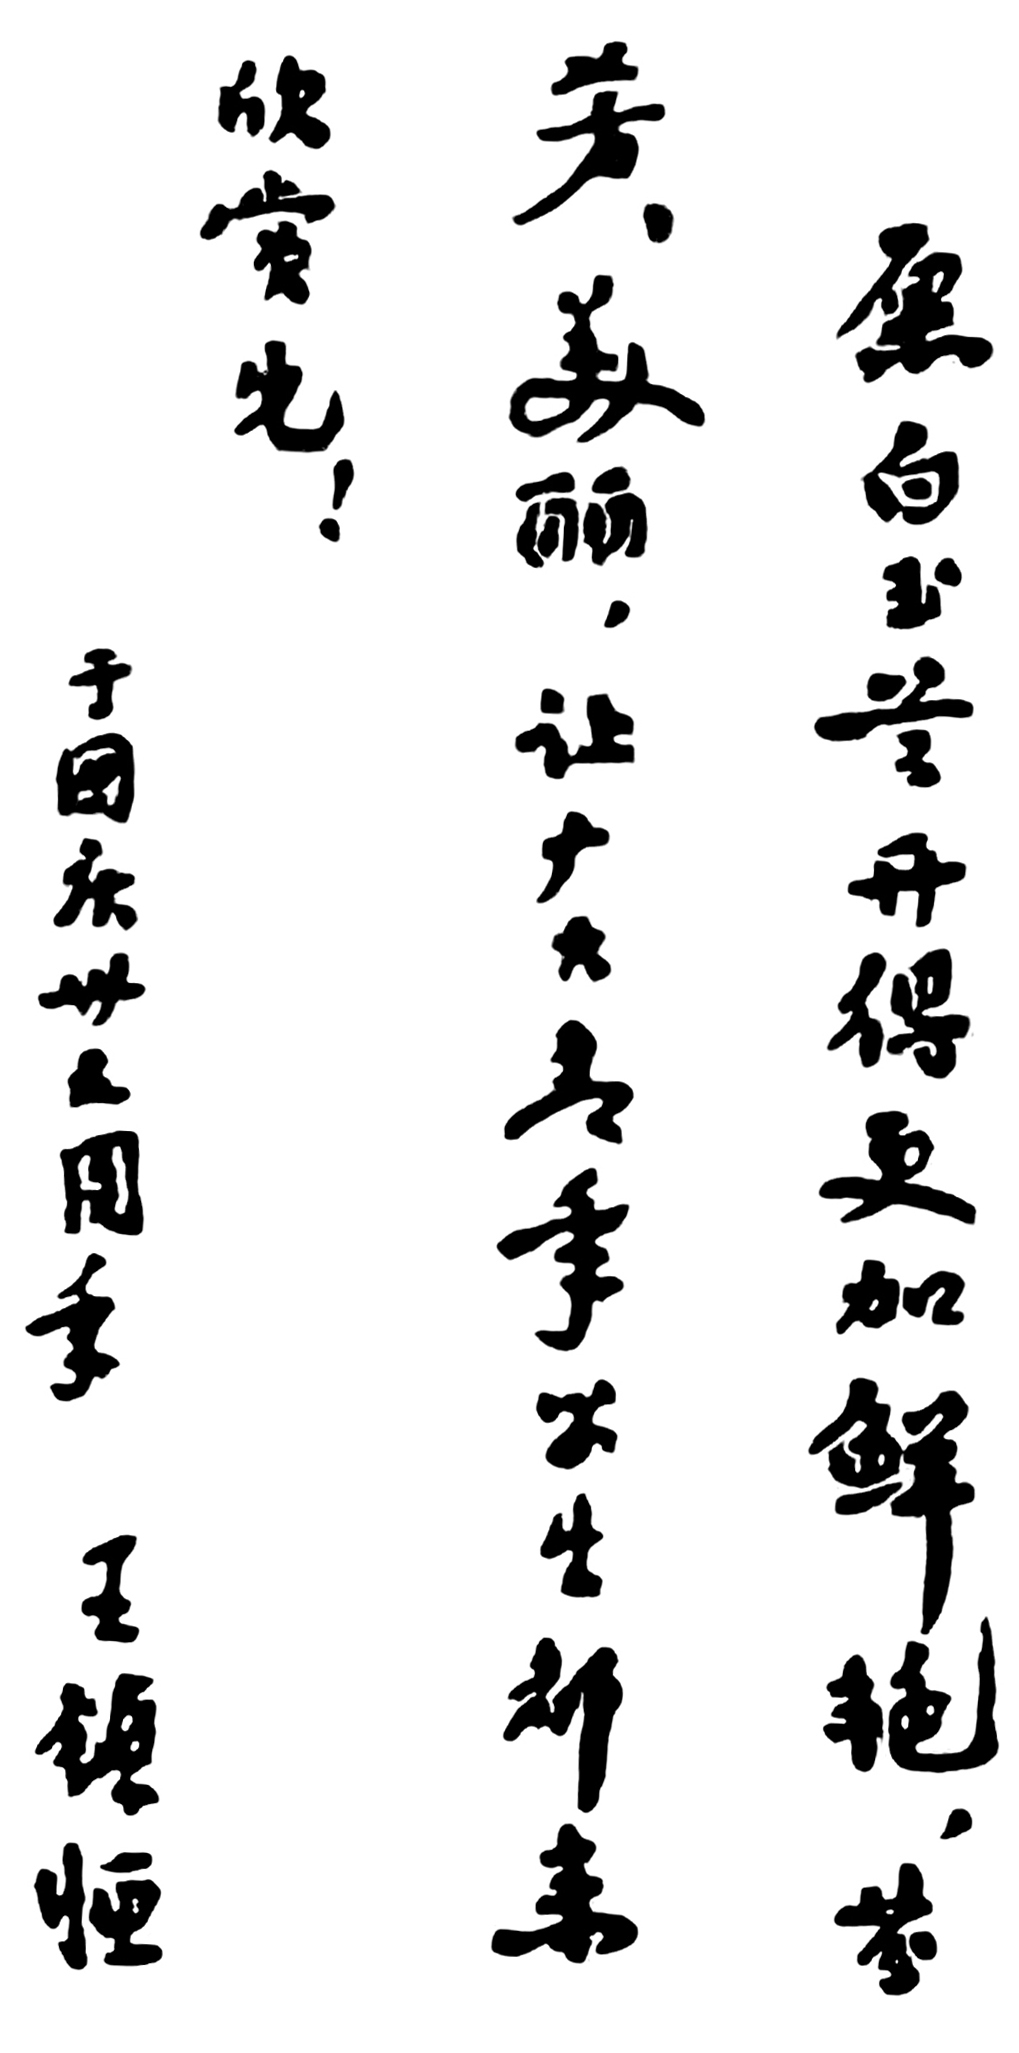 愿白玉兰开得更加鲜艳，芬
芳、美丽，让广大高年学生都来
欣赏它！
于国庆卅五周年 王镇恒